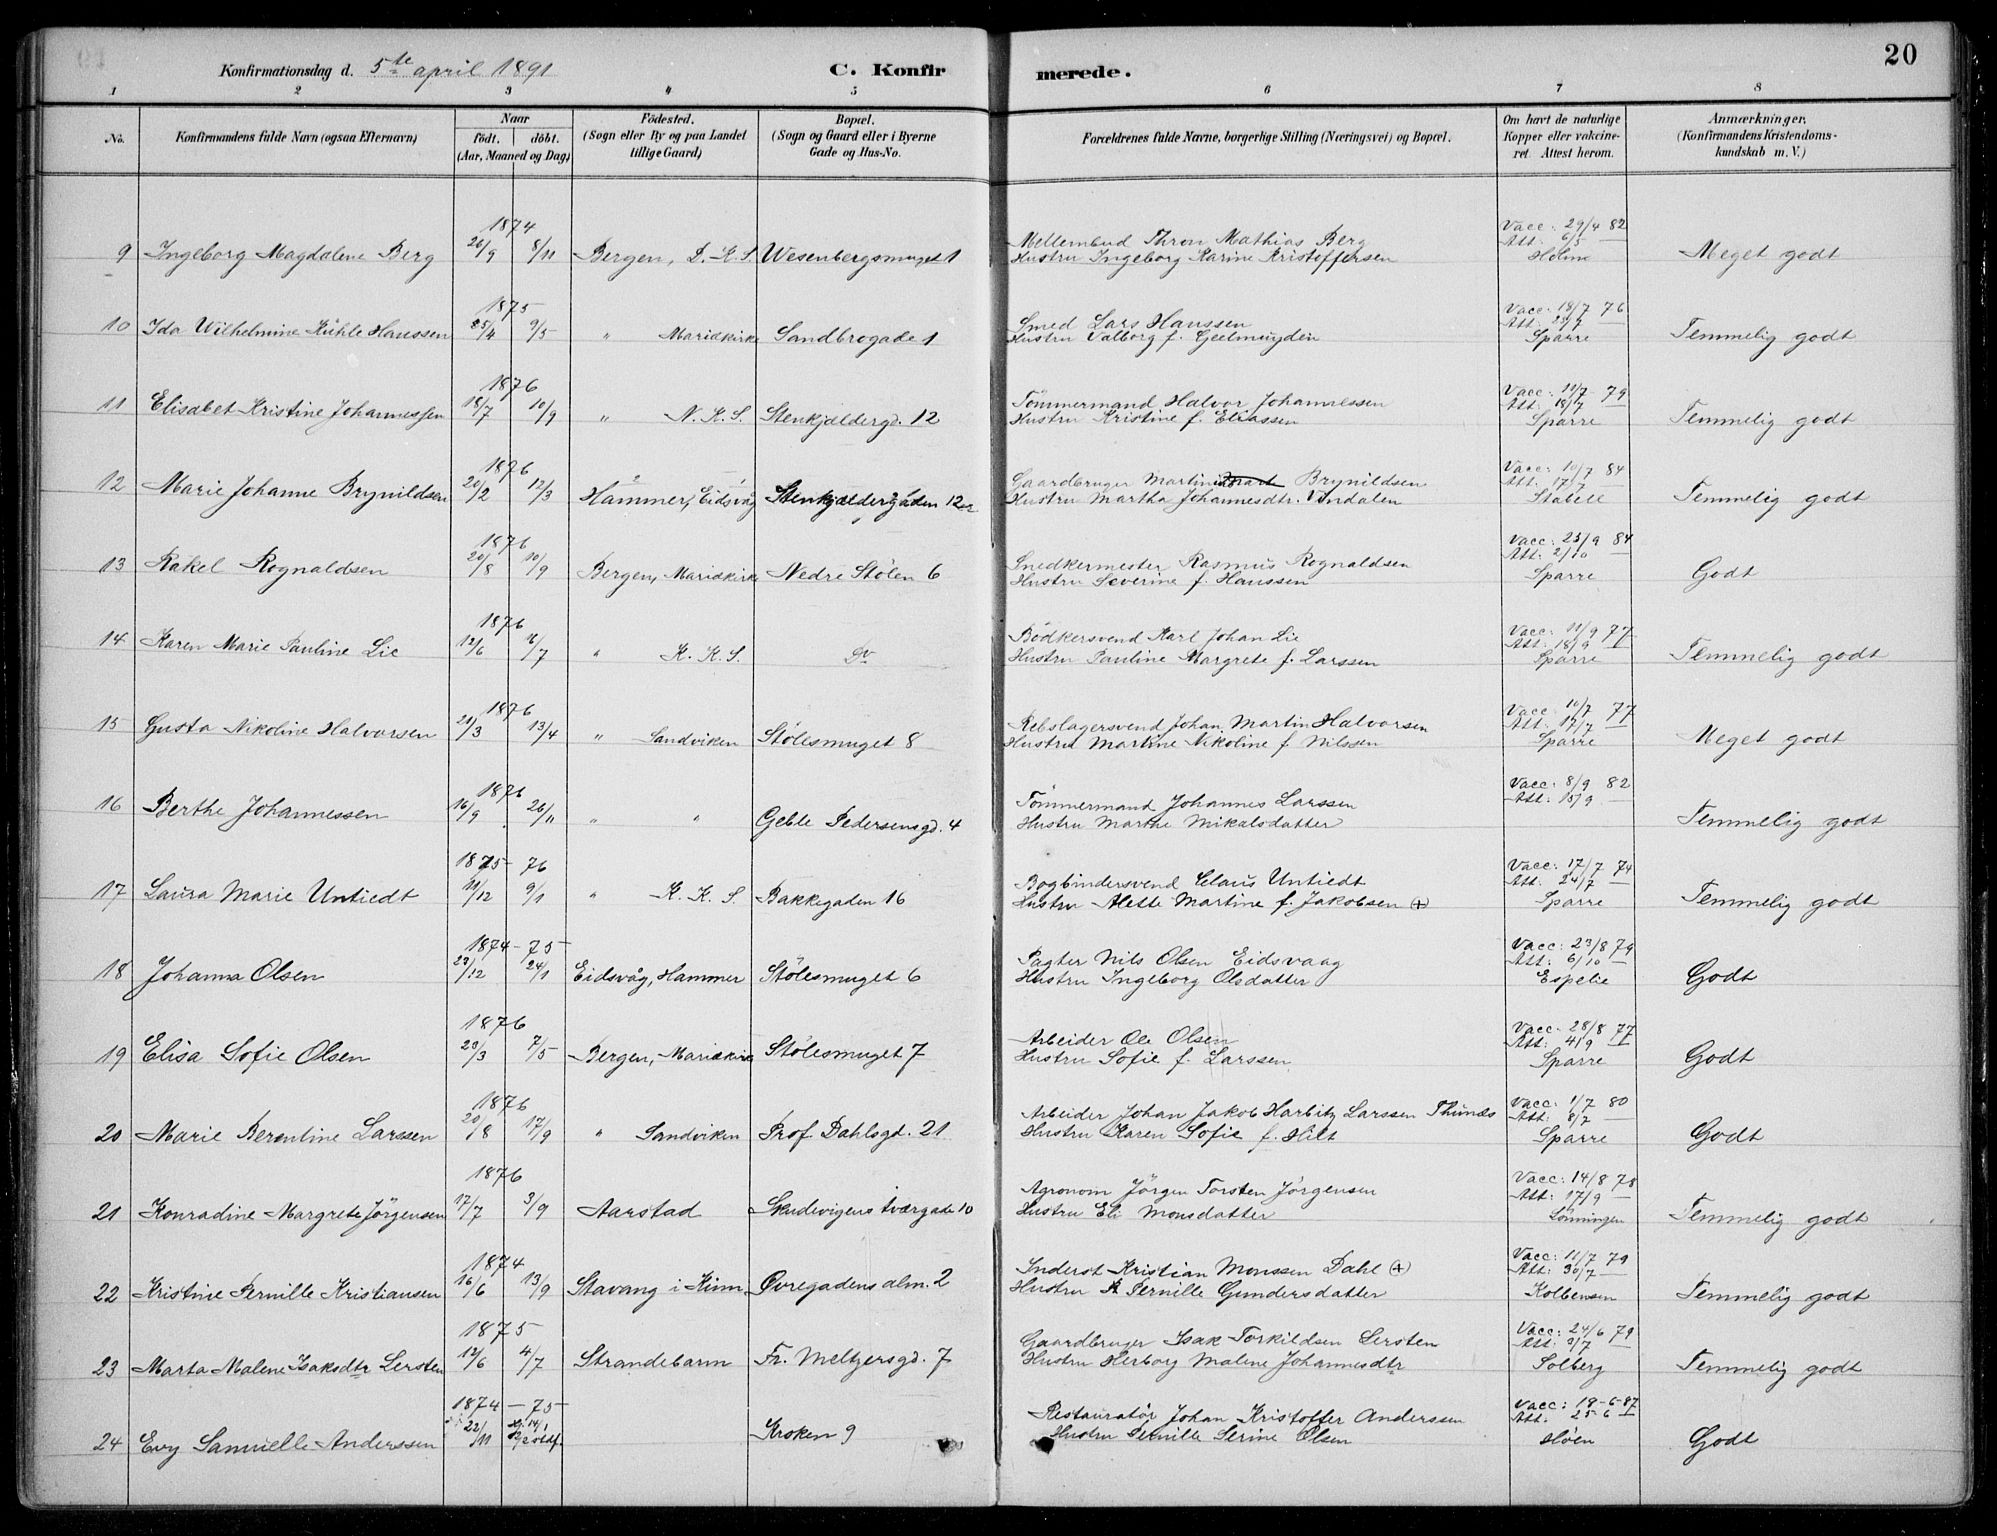 Konfirmationsdag d. 5te april 1891 C. Konfirmerede. 20
1 2 3 4 5 6 7 8
No. Konfirmandens fulde Navn (ogsaa Efternavn) Naar födt. döbt. (Aar, Maaned og Dag) Födested. (Sogn eller By og paa Landet tillige Gaard) Bopæl. (Sogn og Gaard eller i Byerne Gade og Hus-No. Forældrenes fulde Navne, borgerlige Stilling (Næringsvei) og Bopæl. Om havt de naturlige Kopper eller vakcineret Attest herom. Anmærkninger. (Konfirmandens Kristendomskundskab m. V.)
1874
9 Ingeborg Magdalene Berg 26/9 8/11 Bergen, D.K.S. Wesenbergsmuget 1 Mellembud Thron Mathias Berg Vacc: 29/4 82
Hustru Ingeborg Karine Kristoffersen Att: 6/5 — Holme Meget godt
1875
10 Ida Wilhelmine Kühle Hanssen 25/4 9/5 " Mariakirke Sandbrogade 1 Smed Lars Hanssen Vacc: 18/7 76
Hustru Valborg f. Geelmuyden Att: 25/7 — Sparre Temmelig godt
1876
11 Elisabet Kristine Johannessen 18/7 10/9 " N.K.S. Stenkjeldergd. 12 Tömmermand Halvor Johannessen Vacc: 11/7 79
Hustru Kristine f. Eliassen Att: 18/7 — Sparre Temmelig godt
1876
12 Marie Johanne Brynildsen 20/2 12/3 Hammer, Eidsvåg Stenkjældergaden 12 Gaardbruger Martin Brynildsen Vacc: 10/7 84
Hustru Martha Johannesdtr. Vindalen Att: 17/7 — Stabell Temmelig godt
1876
13 Rakel Rognaldsen 20/8 10/9 Bergen, Mariakirke Nedre Stölen 6 Snedkermester Rasmus Rognaldsen Vacc: 25/9 84
Hustru Severine f. Hanssen Att: 2/10 — Sparre Godt
1876
14 Karen Marie Pauline Lie 12/6 16/7 " K.K.S. Do Bödkersvend Karl Johan Lie Vacc: 11/9 77
Hustru Pauline Margrete f. Larssen Att: 18/9 — Sparre Temmelig godt
1876
15 Gusta Nikoline Halvorsen 21/3 13/4 " Sandviken Stölesmuget 8 Rebslagersvend Johan Martin Halvorsen Vacc: 10/7 77
Hustru Martine Nikoline f. Nilssen Att: 17/7 — Sparre Meget godt
1876
16 Berthe Johannessen 16/9 26/11 " " Geble Pedersensgd. 4 Tömmermand Johannes Larssen Vacc: 8/9 82
Hustru Marthe Mikalsdatter Att: 15/9 — Temmelig godt
1875 - 76
17 Laura Marie Untiedt 11/12 9/1 " K.K.S. Bakkegaden 16 Bogbindersvend Claus Untiedt Vacc: 17/7 74
Hustru Alette Martine f. Jakobsen (+) Att: 24/7 — Sparre Temmelig godt
1874 - 75
18 Johanna Olsen 23/12 24/1 Eidsvåg, Hammer Stölesmuget 6 Pagter Nils Olsen Eidsvaag Vacc: 23/8 79
Hustru Ingeborg Olsdatter Att: 6/10 — Espelie Godt
1876
19 Elisa Sofie Olsen 23/3 7/5 Bergen, Mariakirke Stölesmuget 7 Arbeider Ole Olsen Vacc: 28/8 77
Hustru Sofie f. Larssen Att: 4/9 — Sparre Godt
1876
20 Marie Berentine Larssen 20/8 17/9 " Sandviken Prof. Dahlsgd. 21 Arbeider Johan Jakob Harbitz Larssen Thunes Vacc: 1/7 80
Hustru Karen Sofie f. Hilt Att: 8/7 — Sparre Godt
1876
21 Konradine Margrete Jörgensen 17/7 3/9 Aarstad Skudevigens tværgade 10 Agronom Jörgen Torsten Jörgensen Vacc: 14/8 78
Hustru Eli Monsdatter Att: 17/9 — Lönningen Temmelig godt
1874
22 Kristine Pernille Kristiansen 16/6 13/9 Stavang i Kinn Øvregadens alm. 2 Inderst Kristian Monssen Dahl (+) Vacc: 11/7 79
Hustru Pernille Gundersdatter Att: 30/7 — Kolbensen Temmelig godt
1875
23 Marta Malene Isaksdtr Lersten 12/6 4/7 Strandebarm Fr. Meltzersgd. 7 Gaardbruger Isak Torkildsen Lersten Vacc: 24/6 79
Hustru Herborg Malene Johannesdtr Att: 2/7 Solberg Temmelig godt
1874 - 75
24 Evy Samuelle Anderssen 22/11 Kroken 9 Restauratör Johan Kristoffer Anderssen Vacc: 18-6-87
Hustru Pernille Serine Olsen Att: 25-6 — Höen Godt